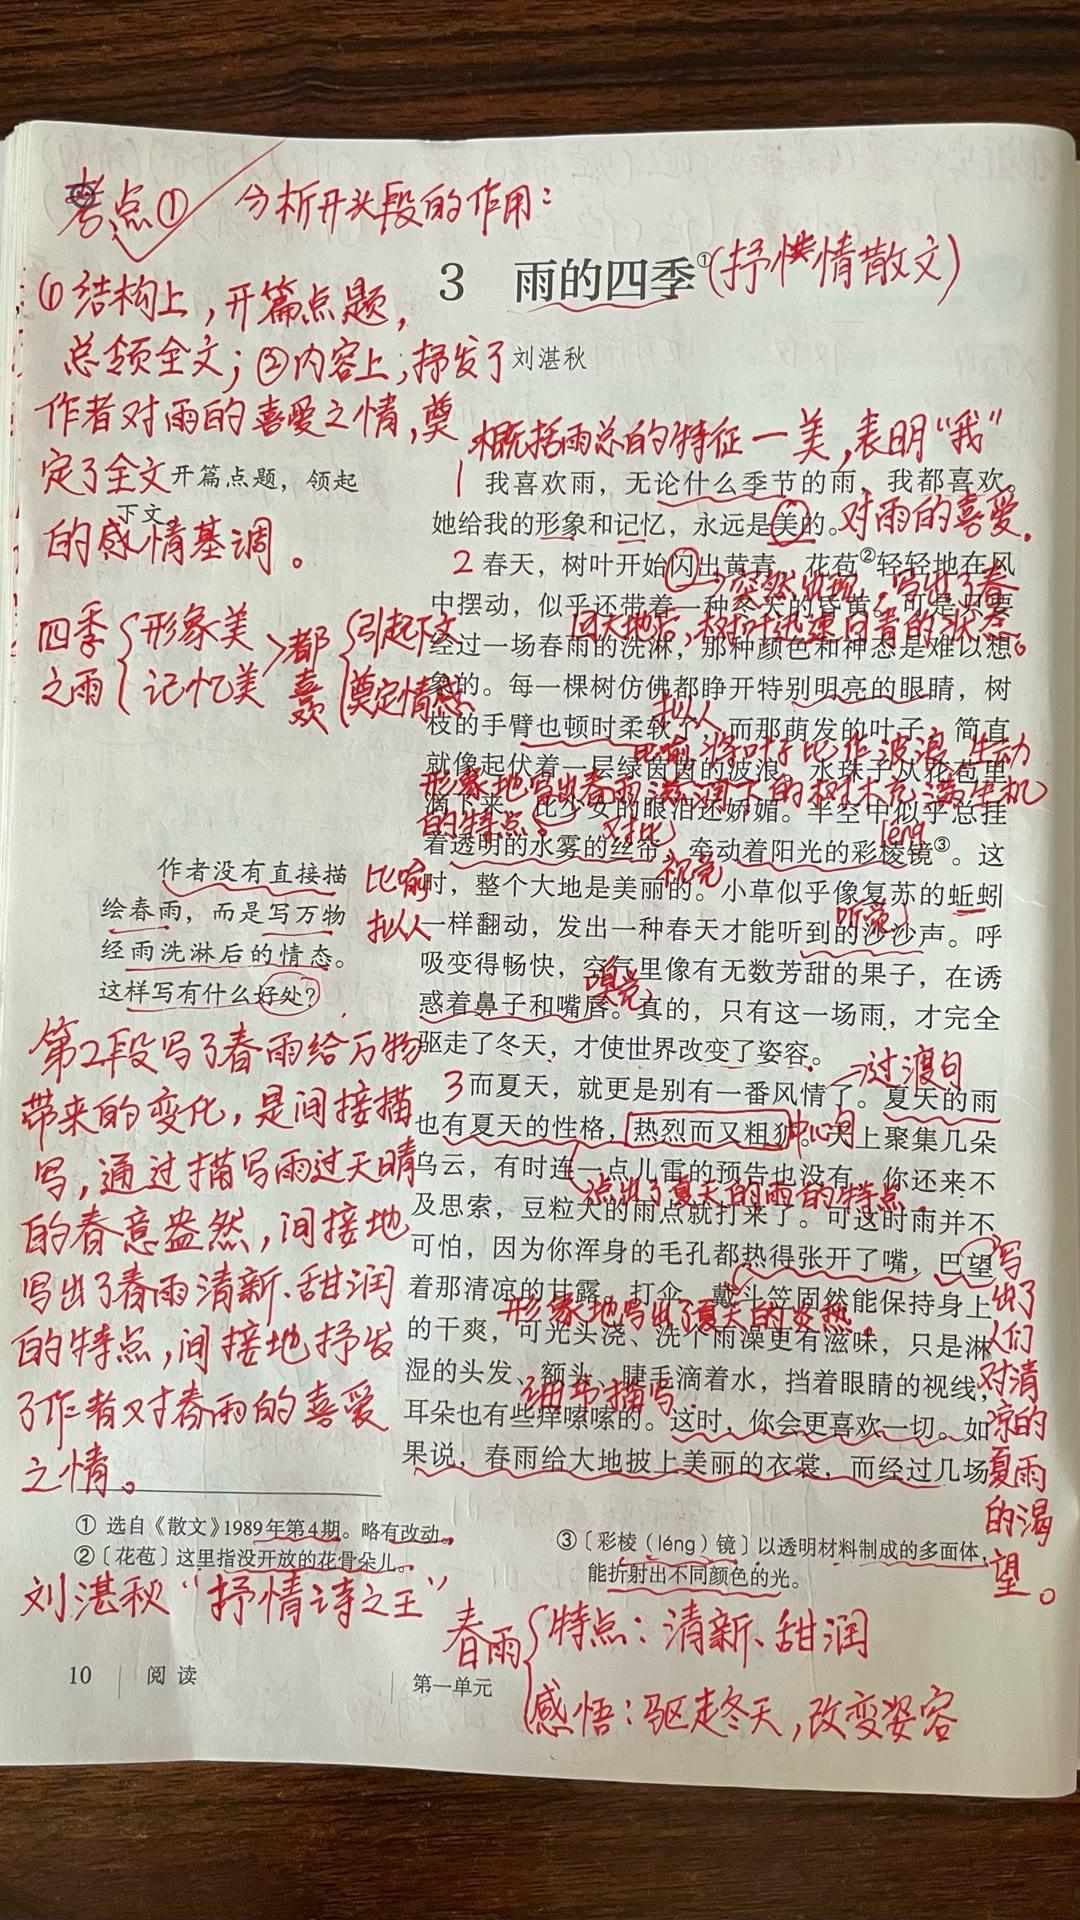 考点① 分析开头段的作用：
3 雨的四季①(抒情散文)
① 结构上，开篇点题，
总领全文；②内容上，抒发了
作者对雨的喜爱之情，奠
定了全文
的感情基调。
刘湛秋
开篇点题，领起
下文
四季之雨
形象美
记忆美
都喜欢
引起下文
奠定情感
概括雨总的特征一美，表明“我”
对雨的喜爱。
1 我喜欢雨，无论什么季节的雨，我都喜欢。
她给我的形象和记忆，永远是美的。
2 春天，树叶开始闪出黄青，花苞②轻轻地在风
突然出现，写出了春
中摆动，似乎还带着一种冬天的昏黄。可是只要
回大地后，树叶迅速由青的状态。
经过一场春雨的洗淋，那种颜色和神态是难以想
象的。每一棵树仿佛都睁开特别明亮的眼睛，树
拟人
枝的手臂也顿时柔软了，而那萌发的叶子，简直
比喻，将叶子比作波浪，生动
就像起伏着一层绿茵茵的波浪。水珠子从花苞里
形象地写出春雨滋润下的树木充满生机
滴下来，比少女的眼泪还娇媚。半空中似乎总挂
的特点。
对比
léng
着透明的水雾的丝帘，牵动着阳光的彩棱镜③。这
视觉
时，整个大地是美丽的。小草似乎像复苏的蚯蚓
比喻
拟人
听觉
一样翻动，发出一种春天才能听到的沙沙声。呼
吸变得畅快，空气里像有无数芳甜的果子，在诱
嗅觉
惑着鼻子和嘴唇。真的，只有这一场雨，才完全
驱走了冬天，才使世界改变了姿容。
作者没有直接描
绘春雨，而是写万物
经雨洗淋后的情态。
这样写有什么好处？
第2段写了春雨给万物
带来的变化，是间接描
写，通过描写雨过天晴
的春意盎然，间接地
写出了春雨清新、甜润
的特点，间接地抒发
了作者对春雨的喜爱
之情。
过渡句
3 而夏天，就更是别有一番风情了。夏天的雨
也有夏天的性格，热烈而又粗犷。天上聚集几朵
中心句
乌云，有时连一点儿雷的预告也没有，你还来不
点出了夏天的雨的特点。
及思索，豆粒大的雨点就打来了。可这时雨并不
可怕，因为你浑身的毛孔都热得张开了嘴，巴望
着那清凉的甘露。打伞、戴斗笠固然能保持身上
形象地写出了夏天的炎热。
的干爽，可光头浇、洗个雨澡更有滋味，只是淋
湿的头发、额头、睫毛滴着水，挡着眼睛的视线，
细节描写。
耳朵也有些痒嗦嗦的。这时，你会更喜欢一切。如
果说，春雨给大地披上美丽的衣裳，而经过几场
写
出了
人们
对清
凉的
夏雨
的渴
望。
① 选自《散文》1989年第4期。略有改动。
②〔花苞〕这里指没开放的花骨朵儿。
③〔彩棱（léng）镜〕以透明材料制成的多面体，
能折射出不同颜色的光。
刘湛秋“抒情诗之王”
春雨
特点：清新、甜润
感悟：驱走冬天，改变姿容
10 阅读
第一单元